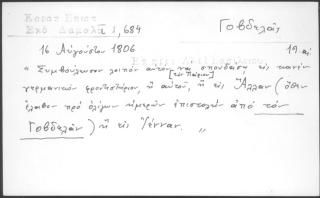 Κοραη Επιστ
Εκδ Δαμαλᾶ 1,684
Γοβδελᾶς
16 Αὐγούστου 1806
19 αἰ
« Συμβούλευσον λοιπὸν αὐτὸν νὰ σπουδάσῃ εἰς κανὲν
[τὸν Πίκκολον]
γερμανικὸν φροντιστήριον, ἢ αὐτοῦ, ἢ εἰς Ἅλλαν (ὅθεν
ἔλαβον πρὸ ὀλίγων ἡμερῶν ἐπιστολὴν ἀπὸ τὸν
Γοβδελᾶν) ἢ εἰς Ἰένναν. »